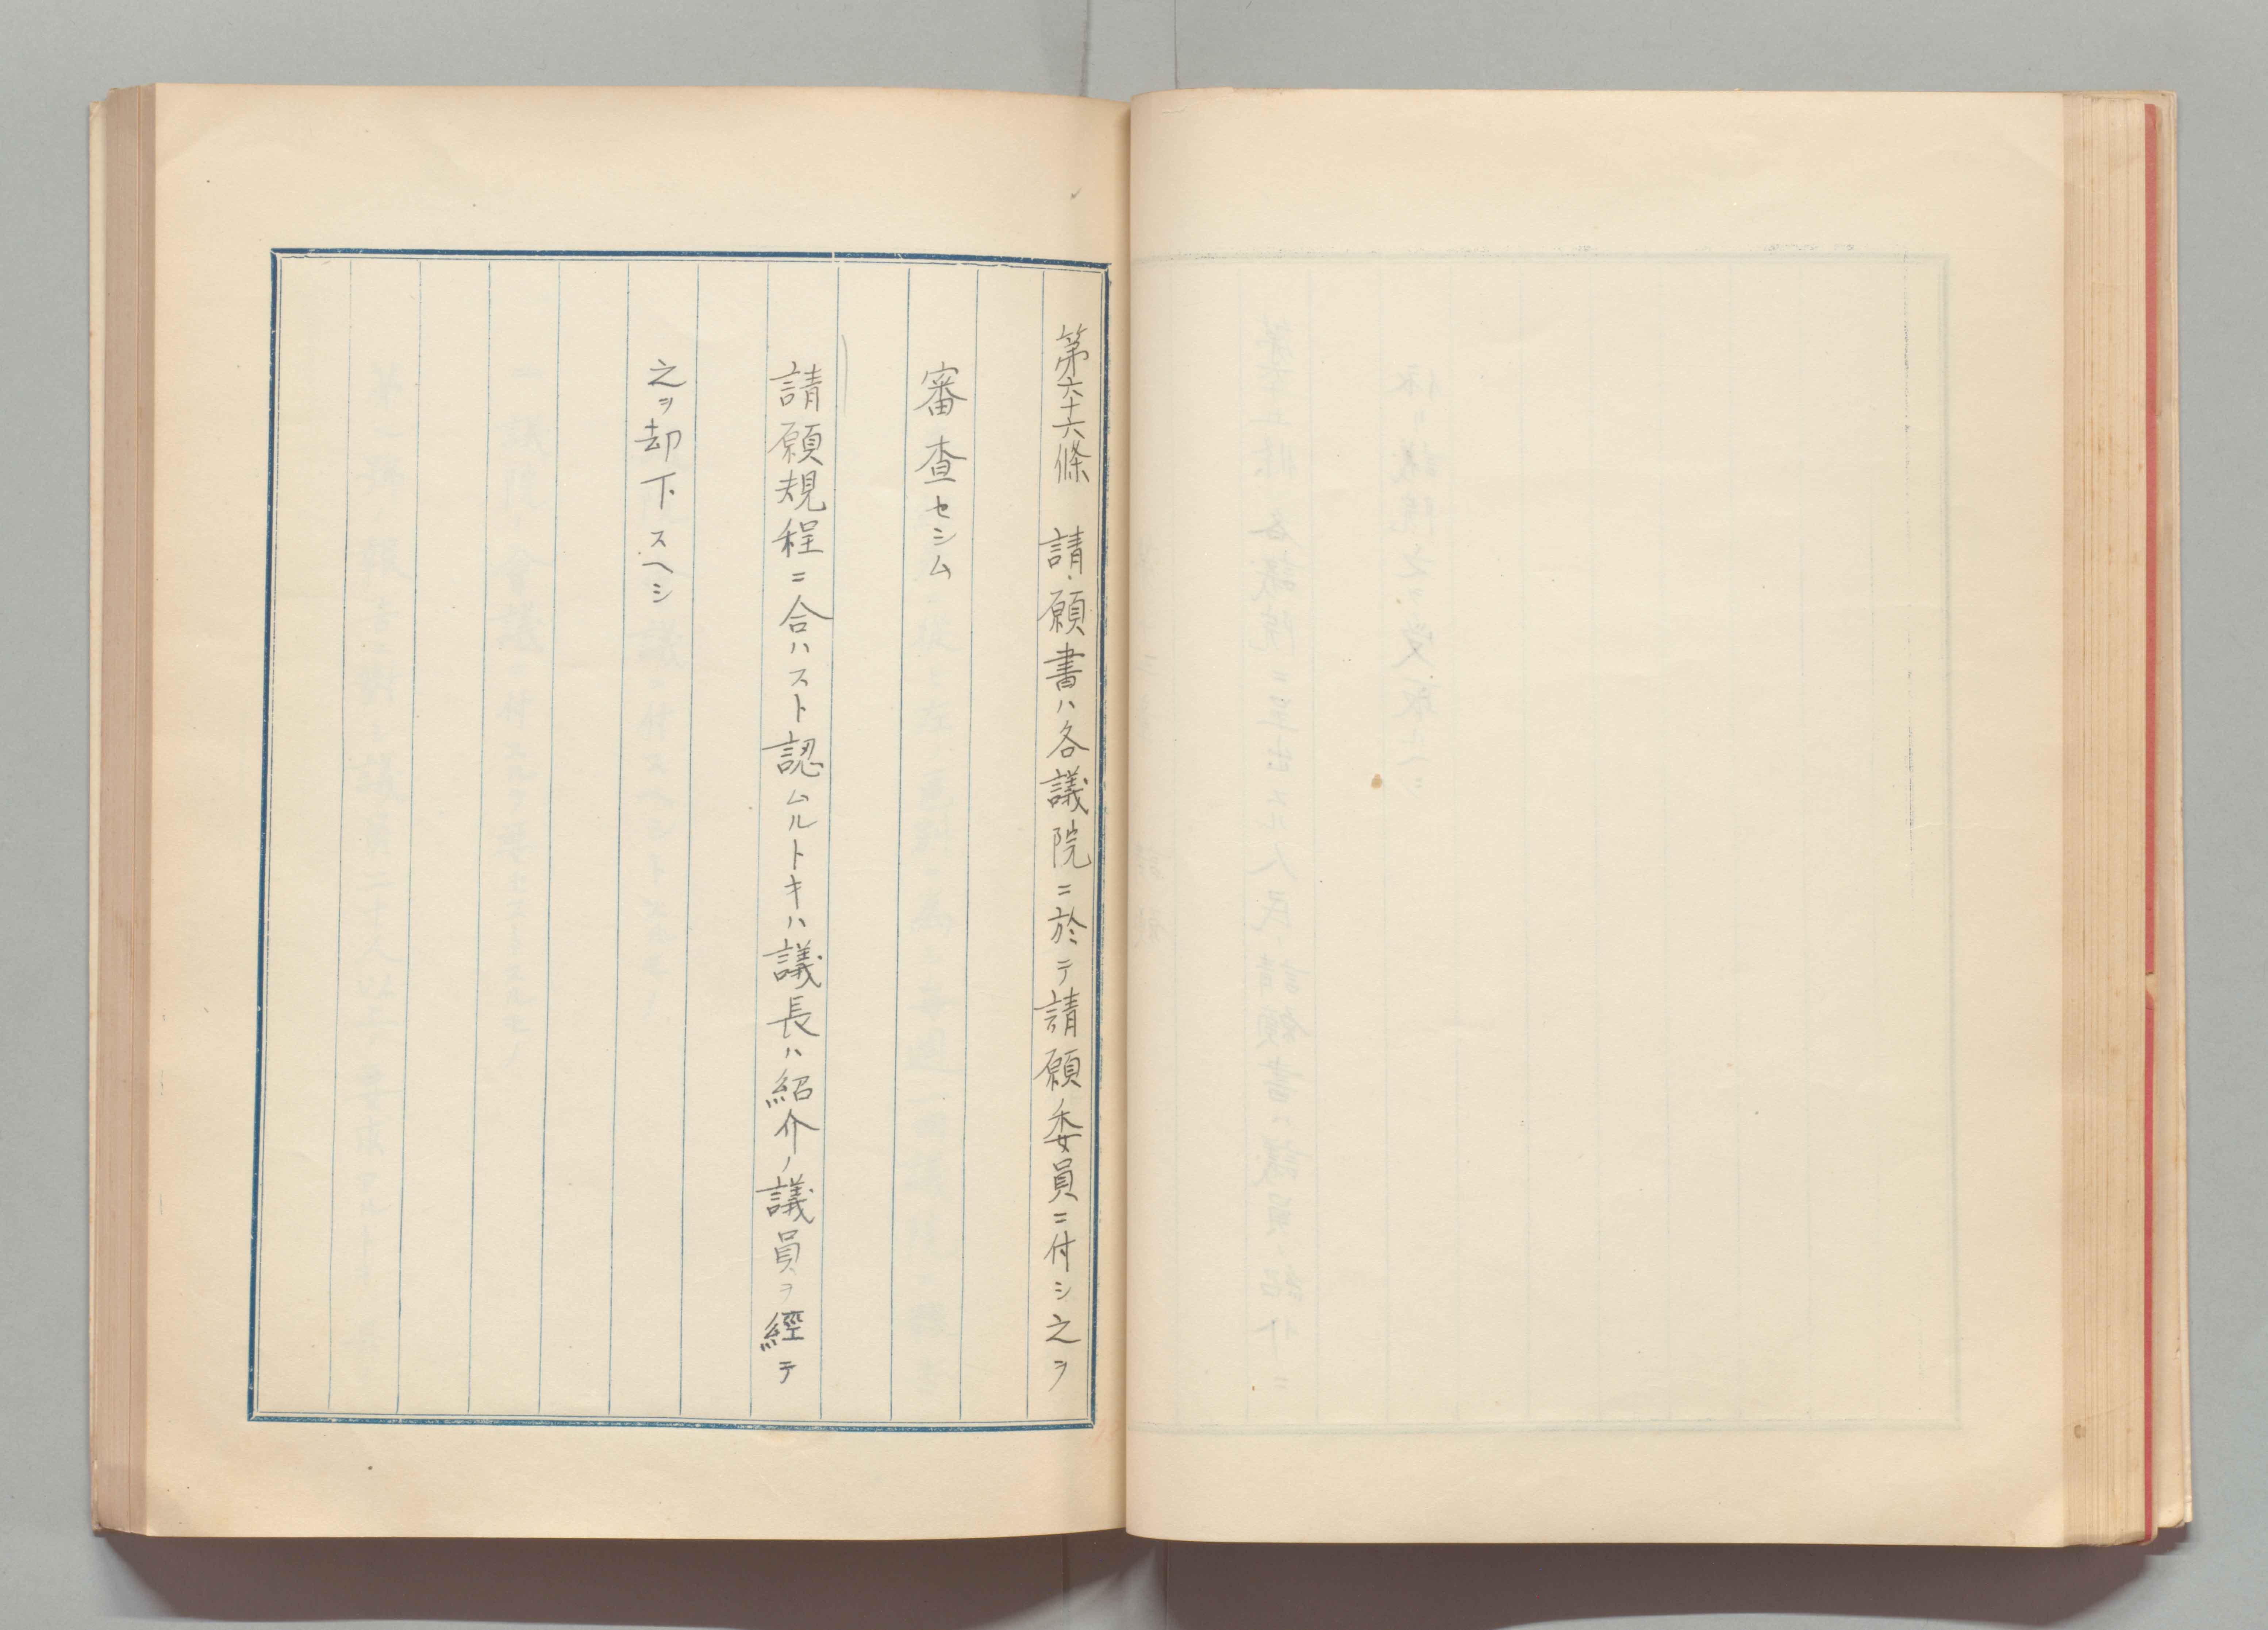 第六十六條　請願書ハ各議院ニ於テ請願委員ニ付シ之ヲ
審査セシム
請願規程ニ合ハスト認ムルトキハ議長ハ紹介ノ議員ヲ經テ
之ヲ却下スヘシ